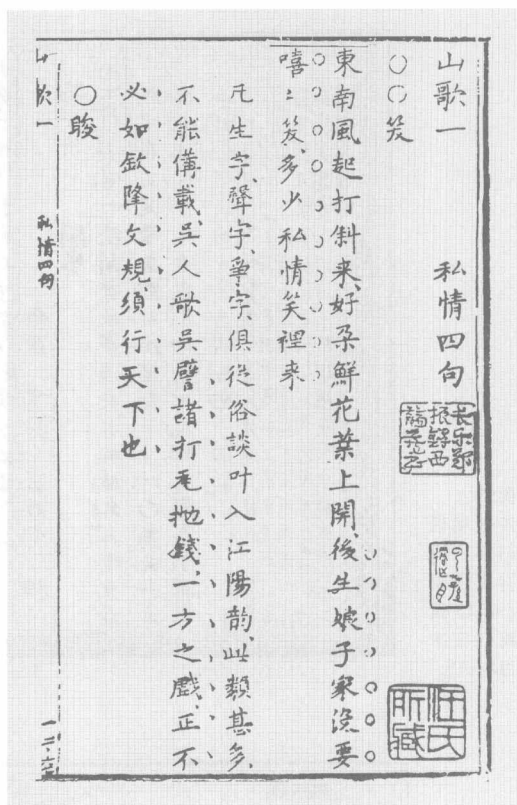 山歌一　私情四句
○○笑
東南風起打斜来、好朶鮮花葉上開、後生娘子家没要
嘻〻笑、多少私情笑裡来
凡生字、聲字、爭字、俱從俗談叶入江陽韵、此類甚多、
不能備載、吳人歌吳、譬諸打毛抛錢、一方之戲、正不
必如欽降文規、須行天下也
○睃
山歌一　私情四句
長樂鄭
振鐸西
諦藏書
汪氏
所藏